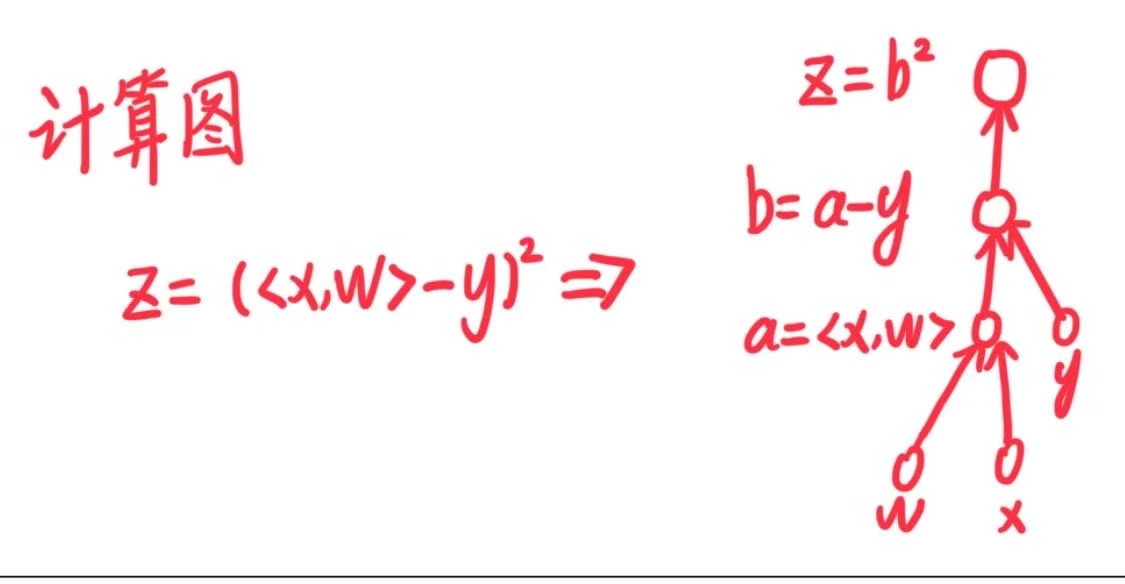 计算图
z=(<x,w>-y)² ⇒
z=b²
b=a-y
a=<x,w>
y
w
x